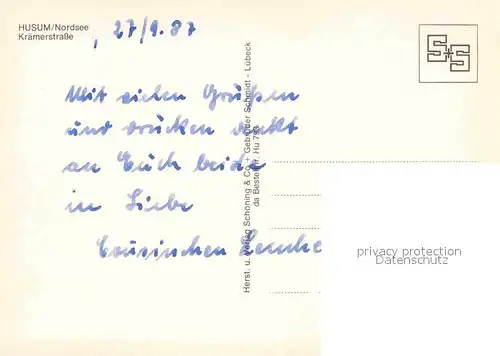 HUSUM/Nordsee
Krämerstraße
, 27/9.87
Mit vielen Grüßen
und
an Euch beide
in Liebe
Cousinchen
Herst. u. Verlag Schöning & Co + Gebrüder Schmidt - Lübeck
da Bestell-Nr. Hu
S+S
privacy protection
Datenschutz